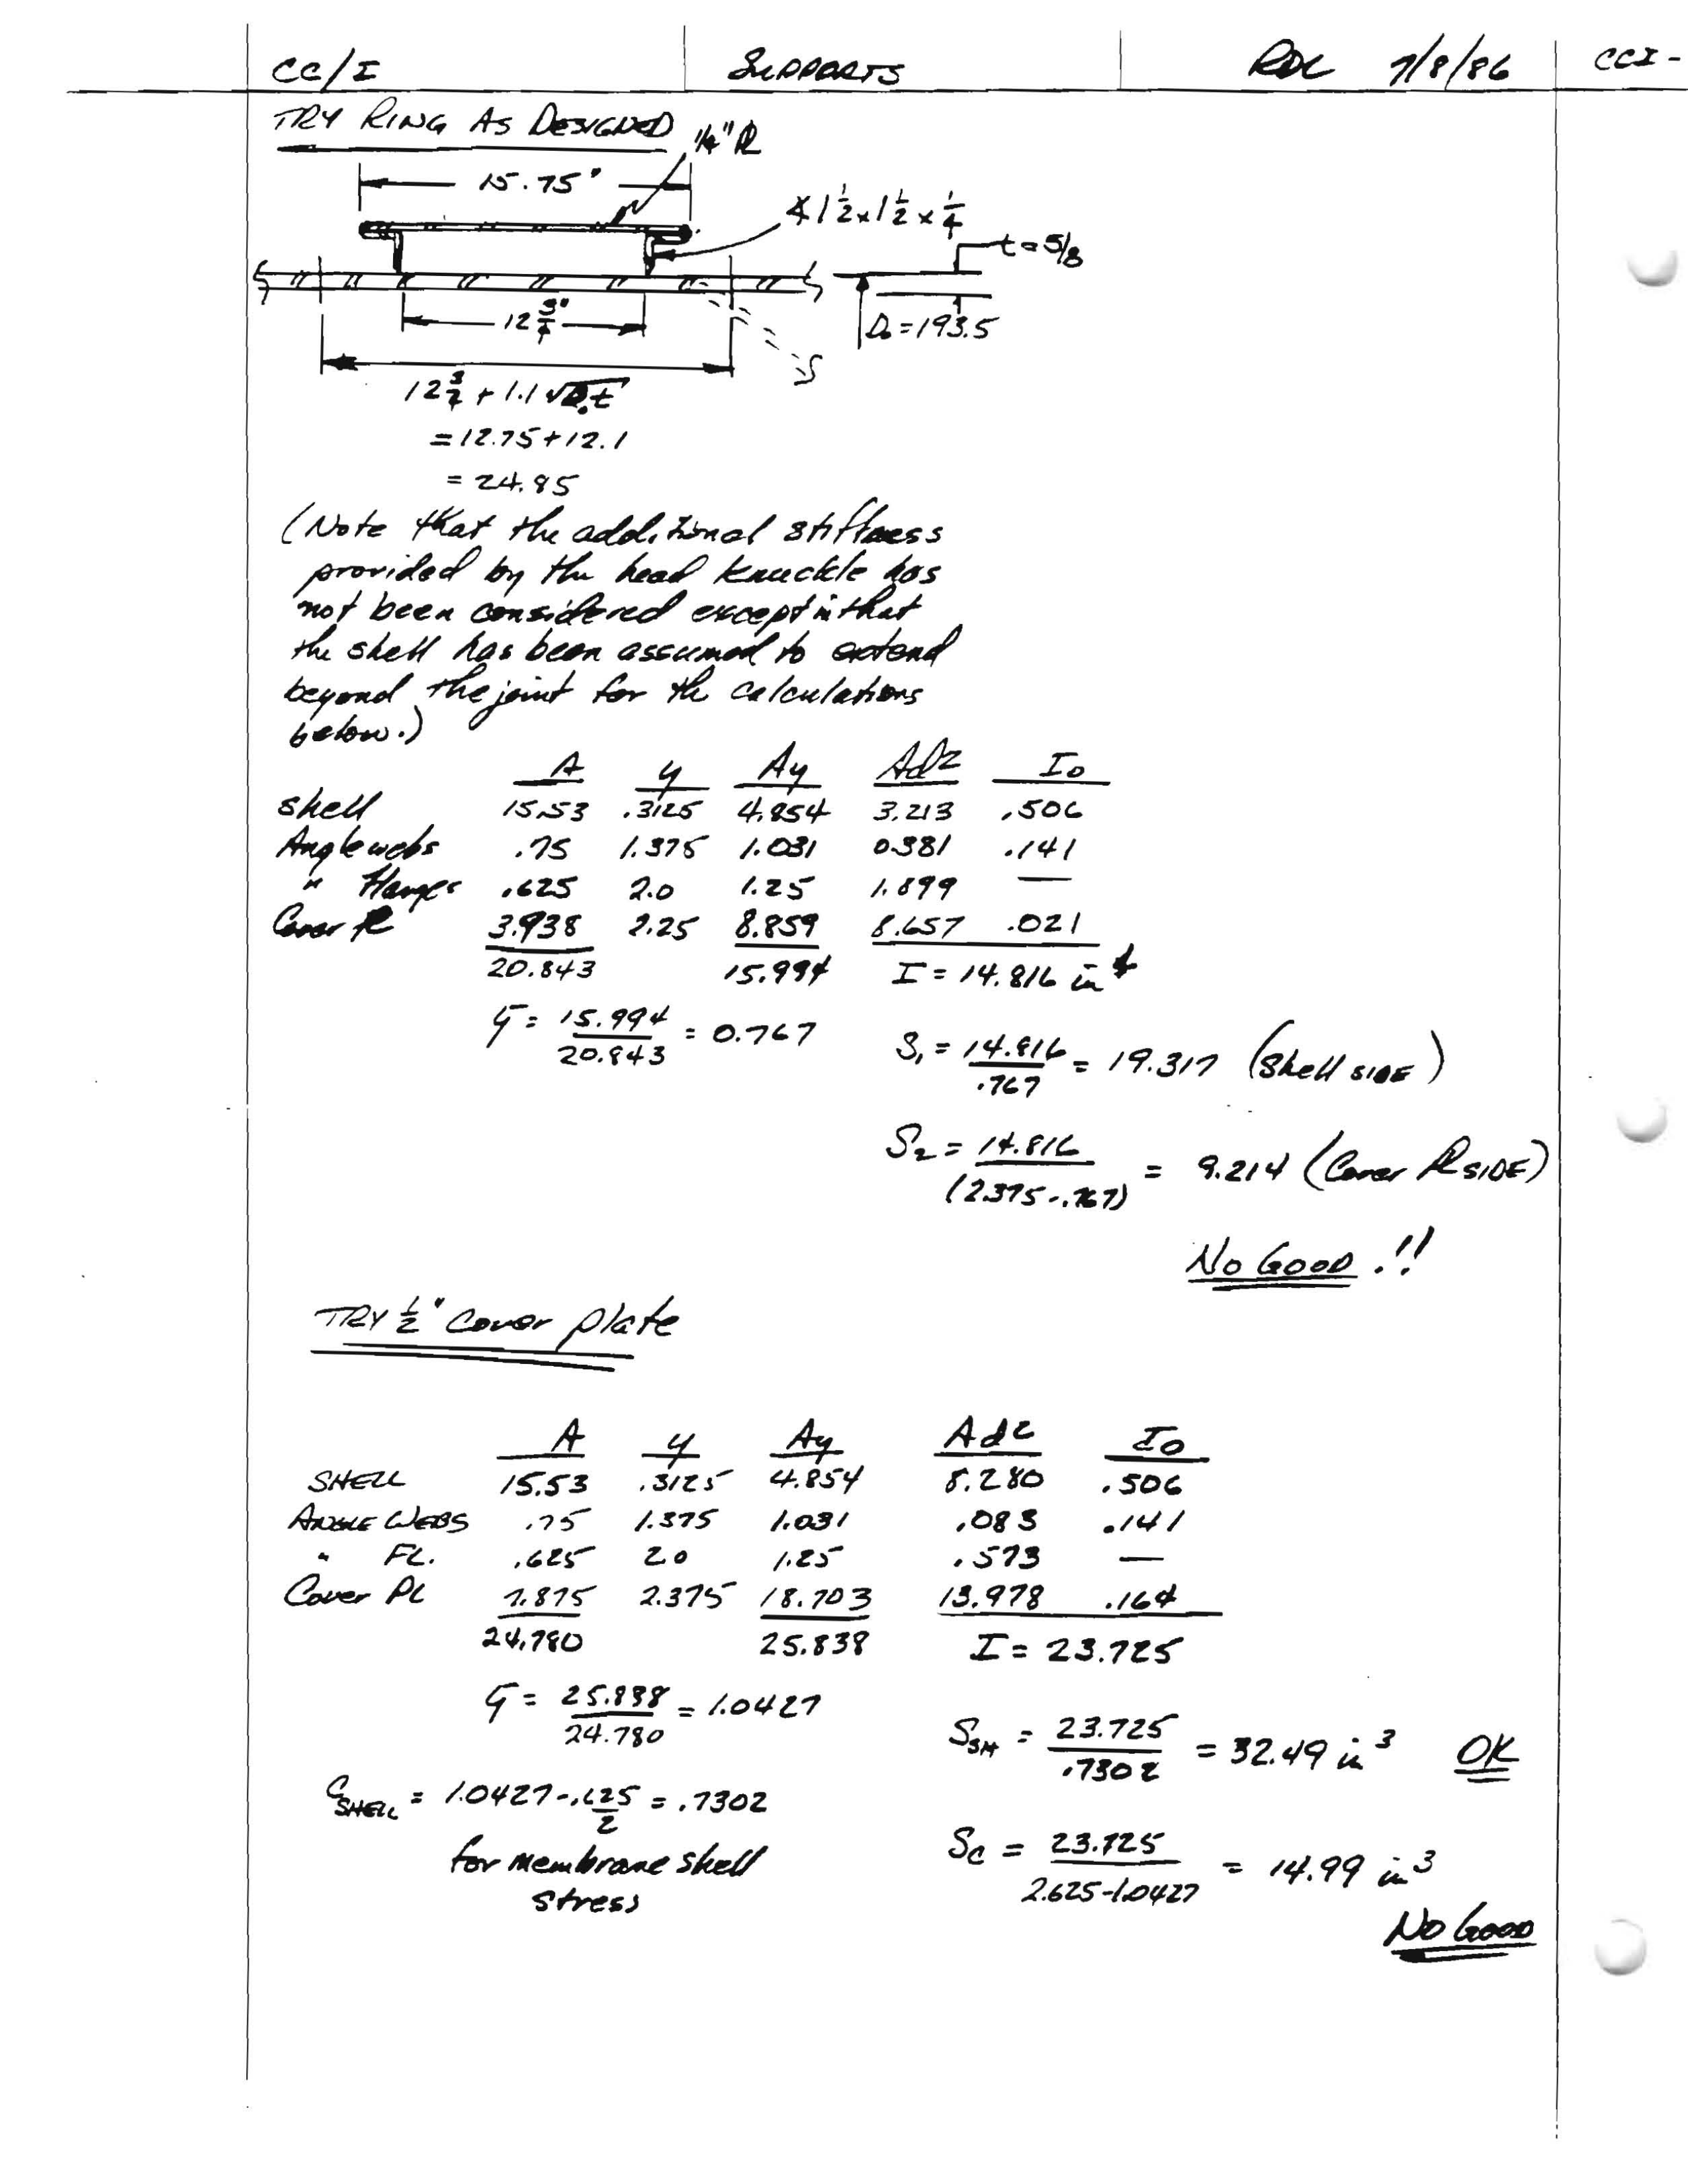 CC/I SUPPORTS RDC 7/8/86 CCI-
TRY RING AS DESIGNED
1/4" PL
15.75"
∡ 1 1/2 x 1 1/2 x 1/4
t = 5/8
12 3/4"
Do = 193.5
12 3/4 + 1.1 √Dot
= 12.75 + 12.1
= 24.85
(Note that the additional stiffness
provided by the head knuckle has
not been considered except in that
the shell has been assumed to extend
beyond the joint for the calculations
below.)
A y Ay Ad2 Io
shell 15.53 .3125 4.854 3.213 .506
Angle webs .75 1.375 1.031 0.381 .141
" Flanges .625 2.0 1.25 1.899 —
Cover PL 3.938 2.25 8.859 8.657 .021
20.843 15.994 I = 14.816 in4
ȳ = 15.994/20.843 = 0.767
S1 = 14.816/.767 = 19.317 (Shell SIDE)
S2 = 14.816/(2.375-.767) = 9.214 (Cover PL SIDE)
NO GOOD.!!
TRY 1/2" Cover plate
A y Ay Ad2 Io
SHELL 15.53 .3125 4.854 8.280 .506
ANGLE WEBS .75 1.375 1.031 .083 .141
" FL. .625 2.0 1.25 .573 —
Cover PL 7.875 2.375 18.703 13.978 .164
24.780 25.838 I = 23.725
ȳ = 25.838/24.780 = 1.0427
SSH = 23.725/.7302 = 32.49 in3 OK
CSHELL = 1.0427 - .625/2 = .7302
for membrane shell
stress
SC = 23.725/2.625-1.0427 = 14.99 in3
NO GOOD